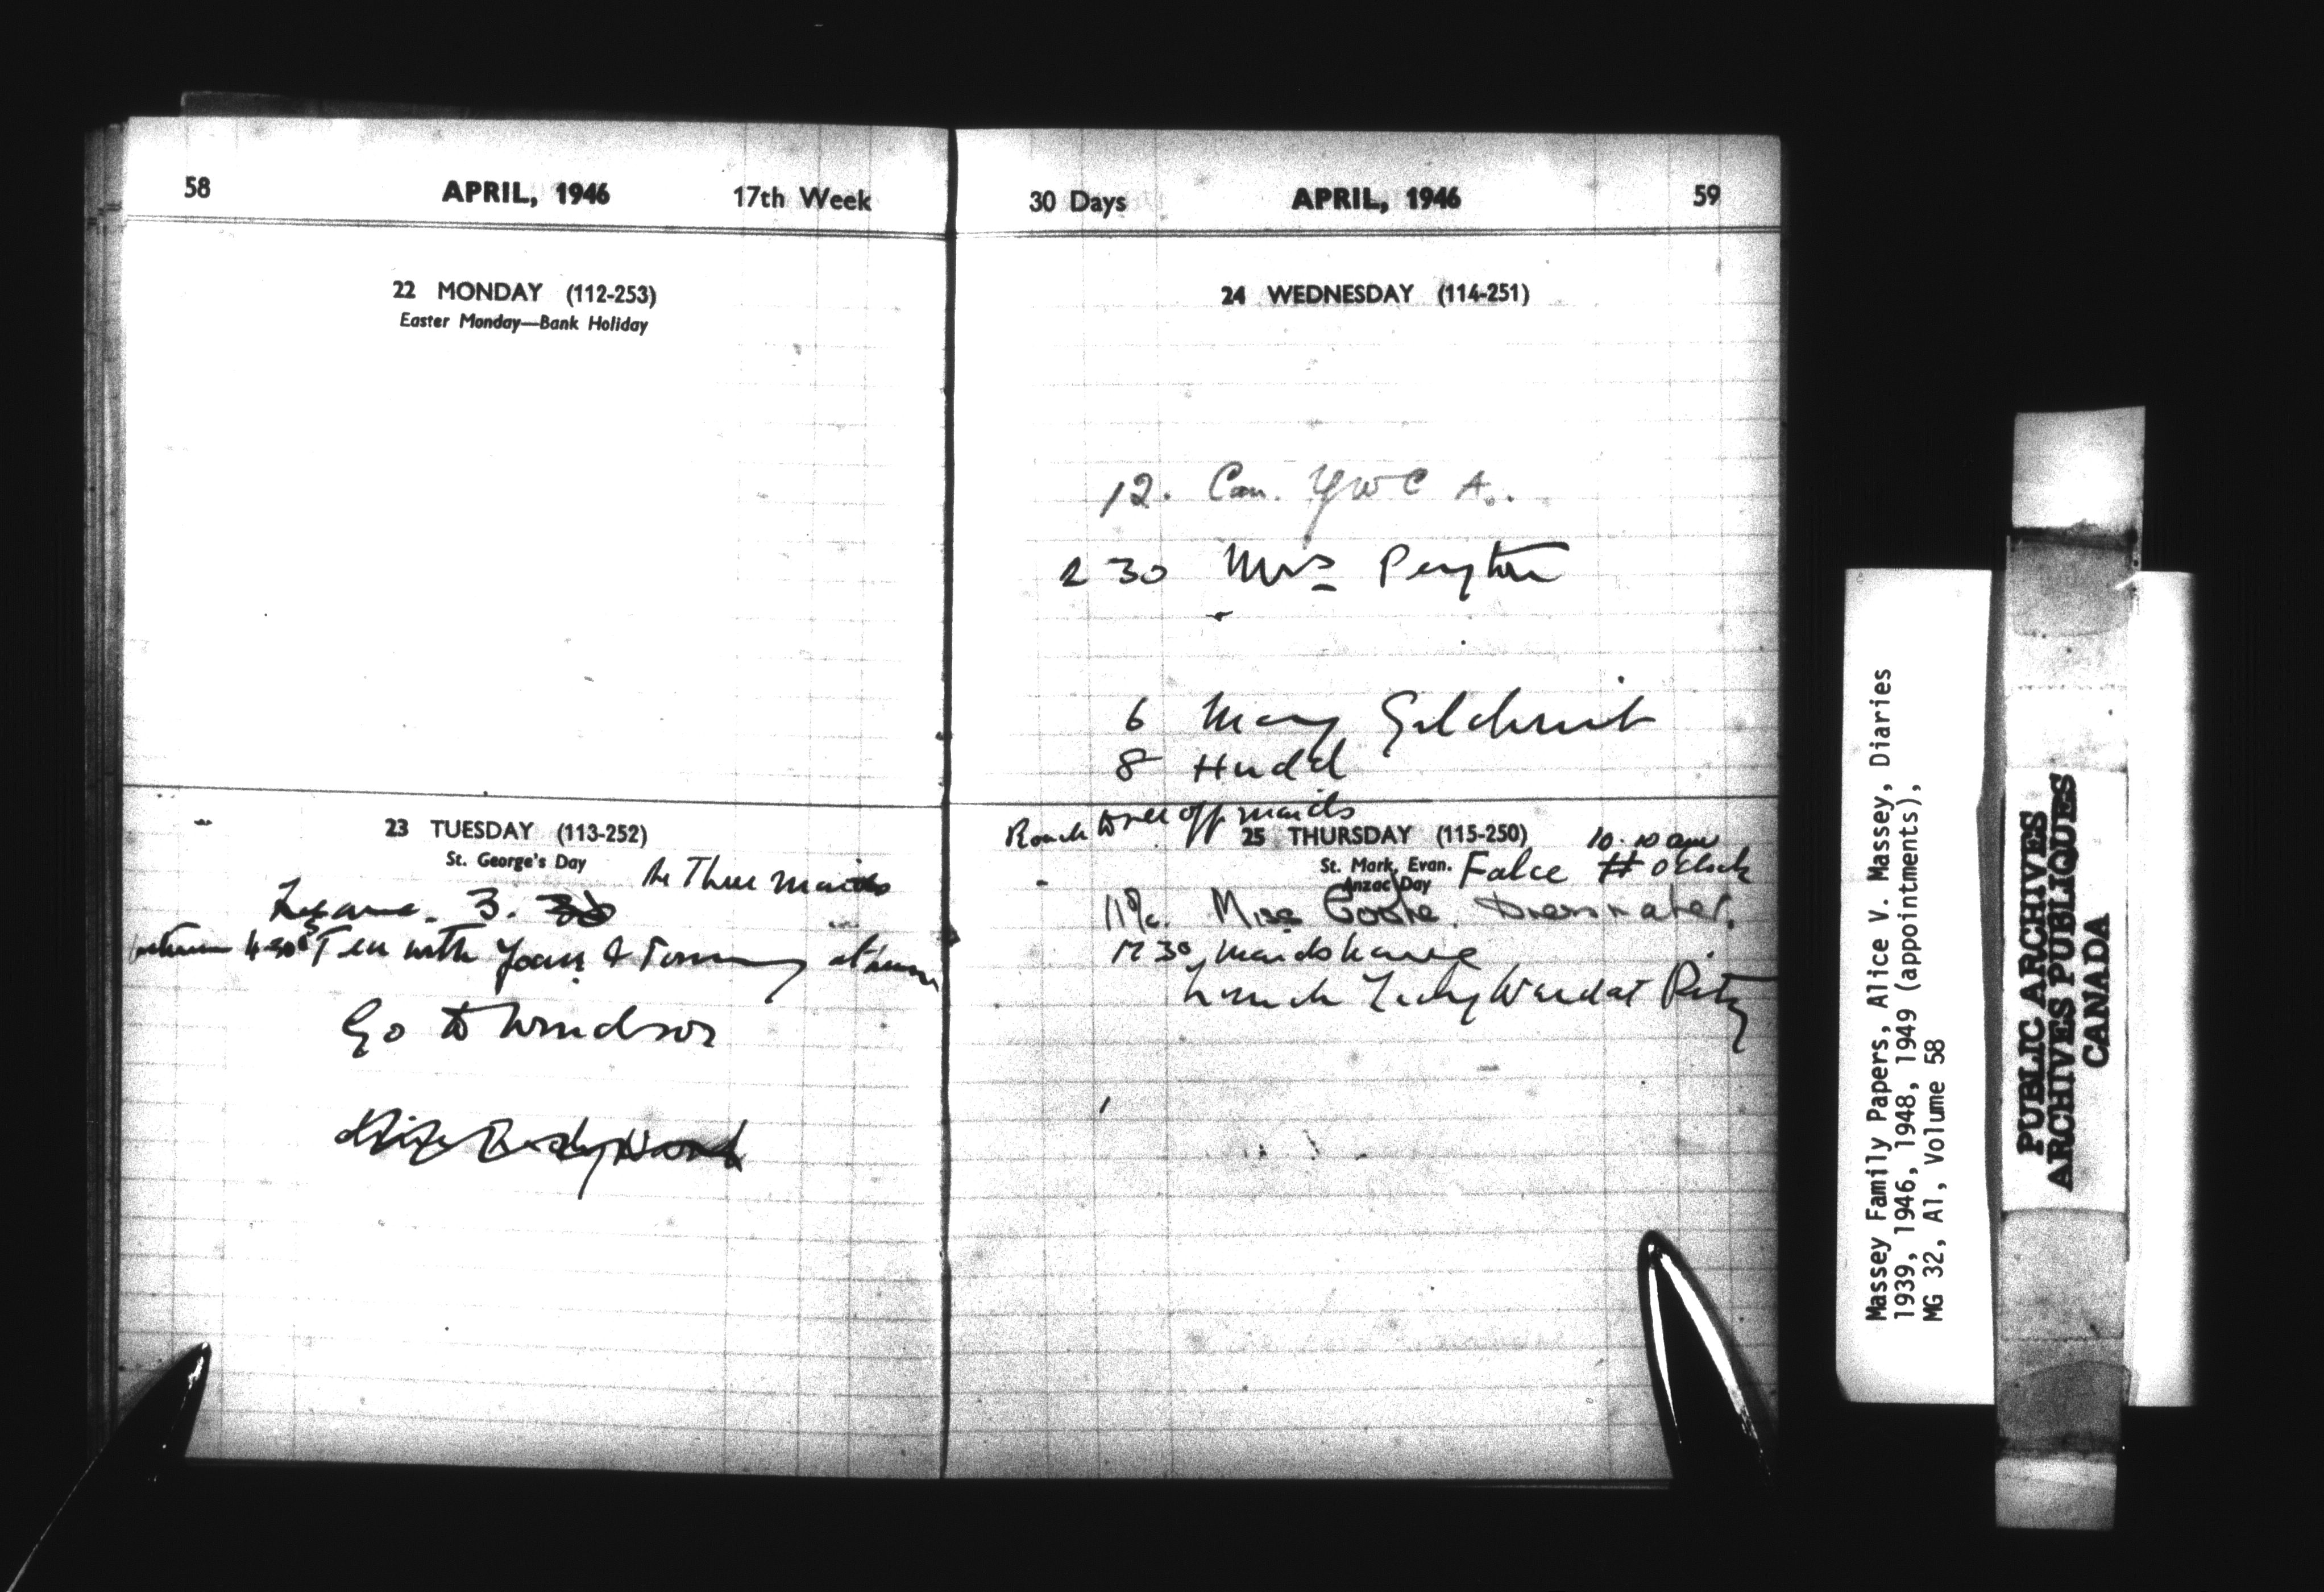 58 APRIL, 1946 17th Week
22 MONDAY (112-253)
Easter Monday—Bank Holiday
23 TUESDAY (113-252)
St. George's Day
Three maids
3. 30
4.30 Tea with Joan & Tommy at home
Go to Windsor
30 Days APRIL, 1946 59
24 WEDNESDAY (114-251)
12. Can. YWCA.
2 30 Mrs Peyton
6 Mary Gilchrist
8 Hudd
Roach to see off maids
25 THURSDAY (115-250) 10.10 am
St. Mark, Evan. o'clock
Anzac Day
Miss Cooke. Dressmaker.
12 30 maids leave
Lunch Lady Ward at Ritz
Massey Family Papers, Alice V. Massey, Diaries
1939, 1946, 1948, 1949 (appointments),
MG 32, A1, Volume 58
PUBLIC ARCHIVES
ARCHIVES PUBLIQUES
CANADA